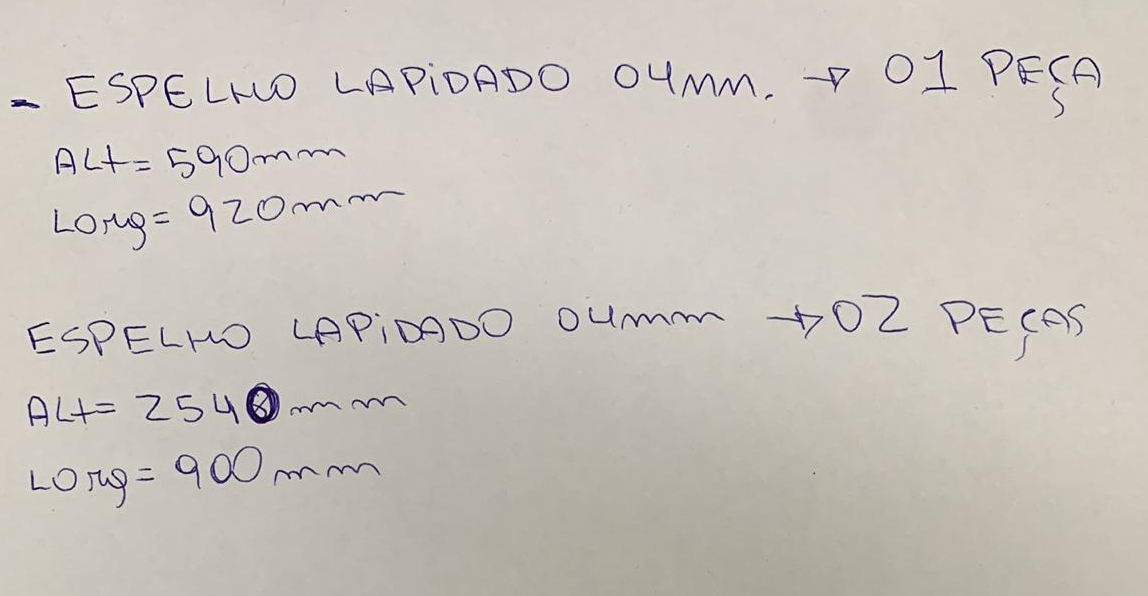 - ESPELHO LAPIDADO 04MM. → 01 PEÇA
ALt= 590mm
Larg= 920mm
ESPELHO LAPIDADO 04mm → 02 PEÇAS
ALt= 2540mm
Larg= 900mm